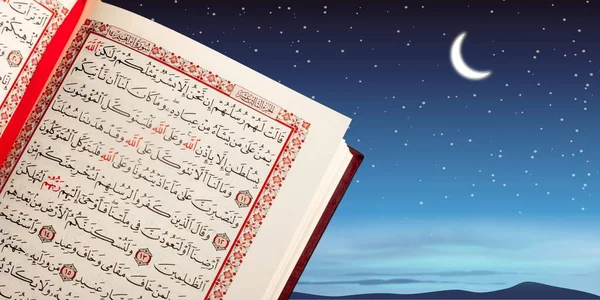 سُورَةُ إِبْرَاهِيمَ
قَالَتْ لَهُمْ رُسُلُهُمْ إِن نَّحْنُ إِلَّا بَشَرٌ مِّثْلُكُمْ وَلَٰكِنَّ اللَّهَ
يَمُنُّ عَلَىٰ مَن يَشَاءُ مِنْ عِبَادِهِ وَمَا كَانَ لَنَا أَن نَّأْتِيَكُم
بِسُلْطَانٍ إِلَّا بِإِذْنِ اللَّهِ وَعَلَى اللَّهِ فَلْيَتَوَكَّلِ الْمُؤْمِنُونَ
١١ وَمَا لَنَا أَلَّا نَتَوَكَّلَ عَلَى اللَّهِ وَقَدْ هَدَانَا سُبُلَنَا
وَلَنَصْبِرَنَّ عَلَىٰ مَا آذَيْتُمُونَا وَعَلَى اللَّهِ فَلْيَتَوَكَّلِ الْمُتَوَكِّلُونَ
١٢ وَقَالَ الَّذِينَ كَفَرُوا لِرُسُلِهِمْ لَنُخْرِجَنَّكُم مِّنْ
أَرْضِنَا أَوْ لَتَعُودُنَّ فِي مِلَّتِنَا فَأَوْحَىٰ إِلَيْهِمْ رَبُّهُمْ لَنُهْلِكَنَّ
الظَّالِمِينَ ١٣ وَلَنُسْكِنَنَّكُمُ الْأَرْضَ مِن بَعْدِهِمْ
لِمَنْ خَافَ مَقَامِي وَخَافَ وَعِيدِ ١٤ وَاسْتَفْتَحُوا
عَنِيدٍ ١٥ مِّن وَرَائِهِ جَهَنَّمُ
وَلَا يَكَادُ